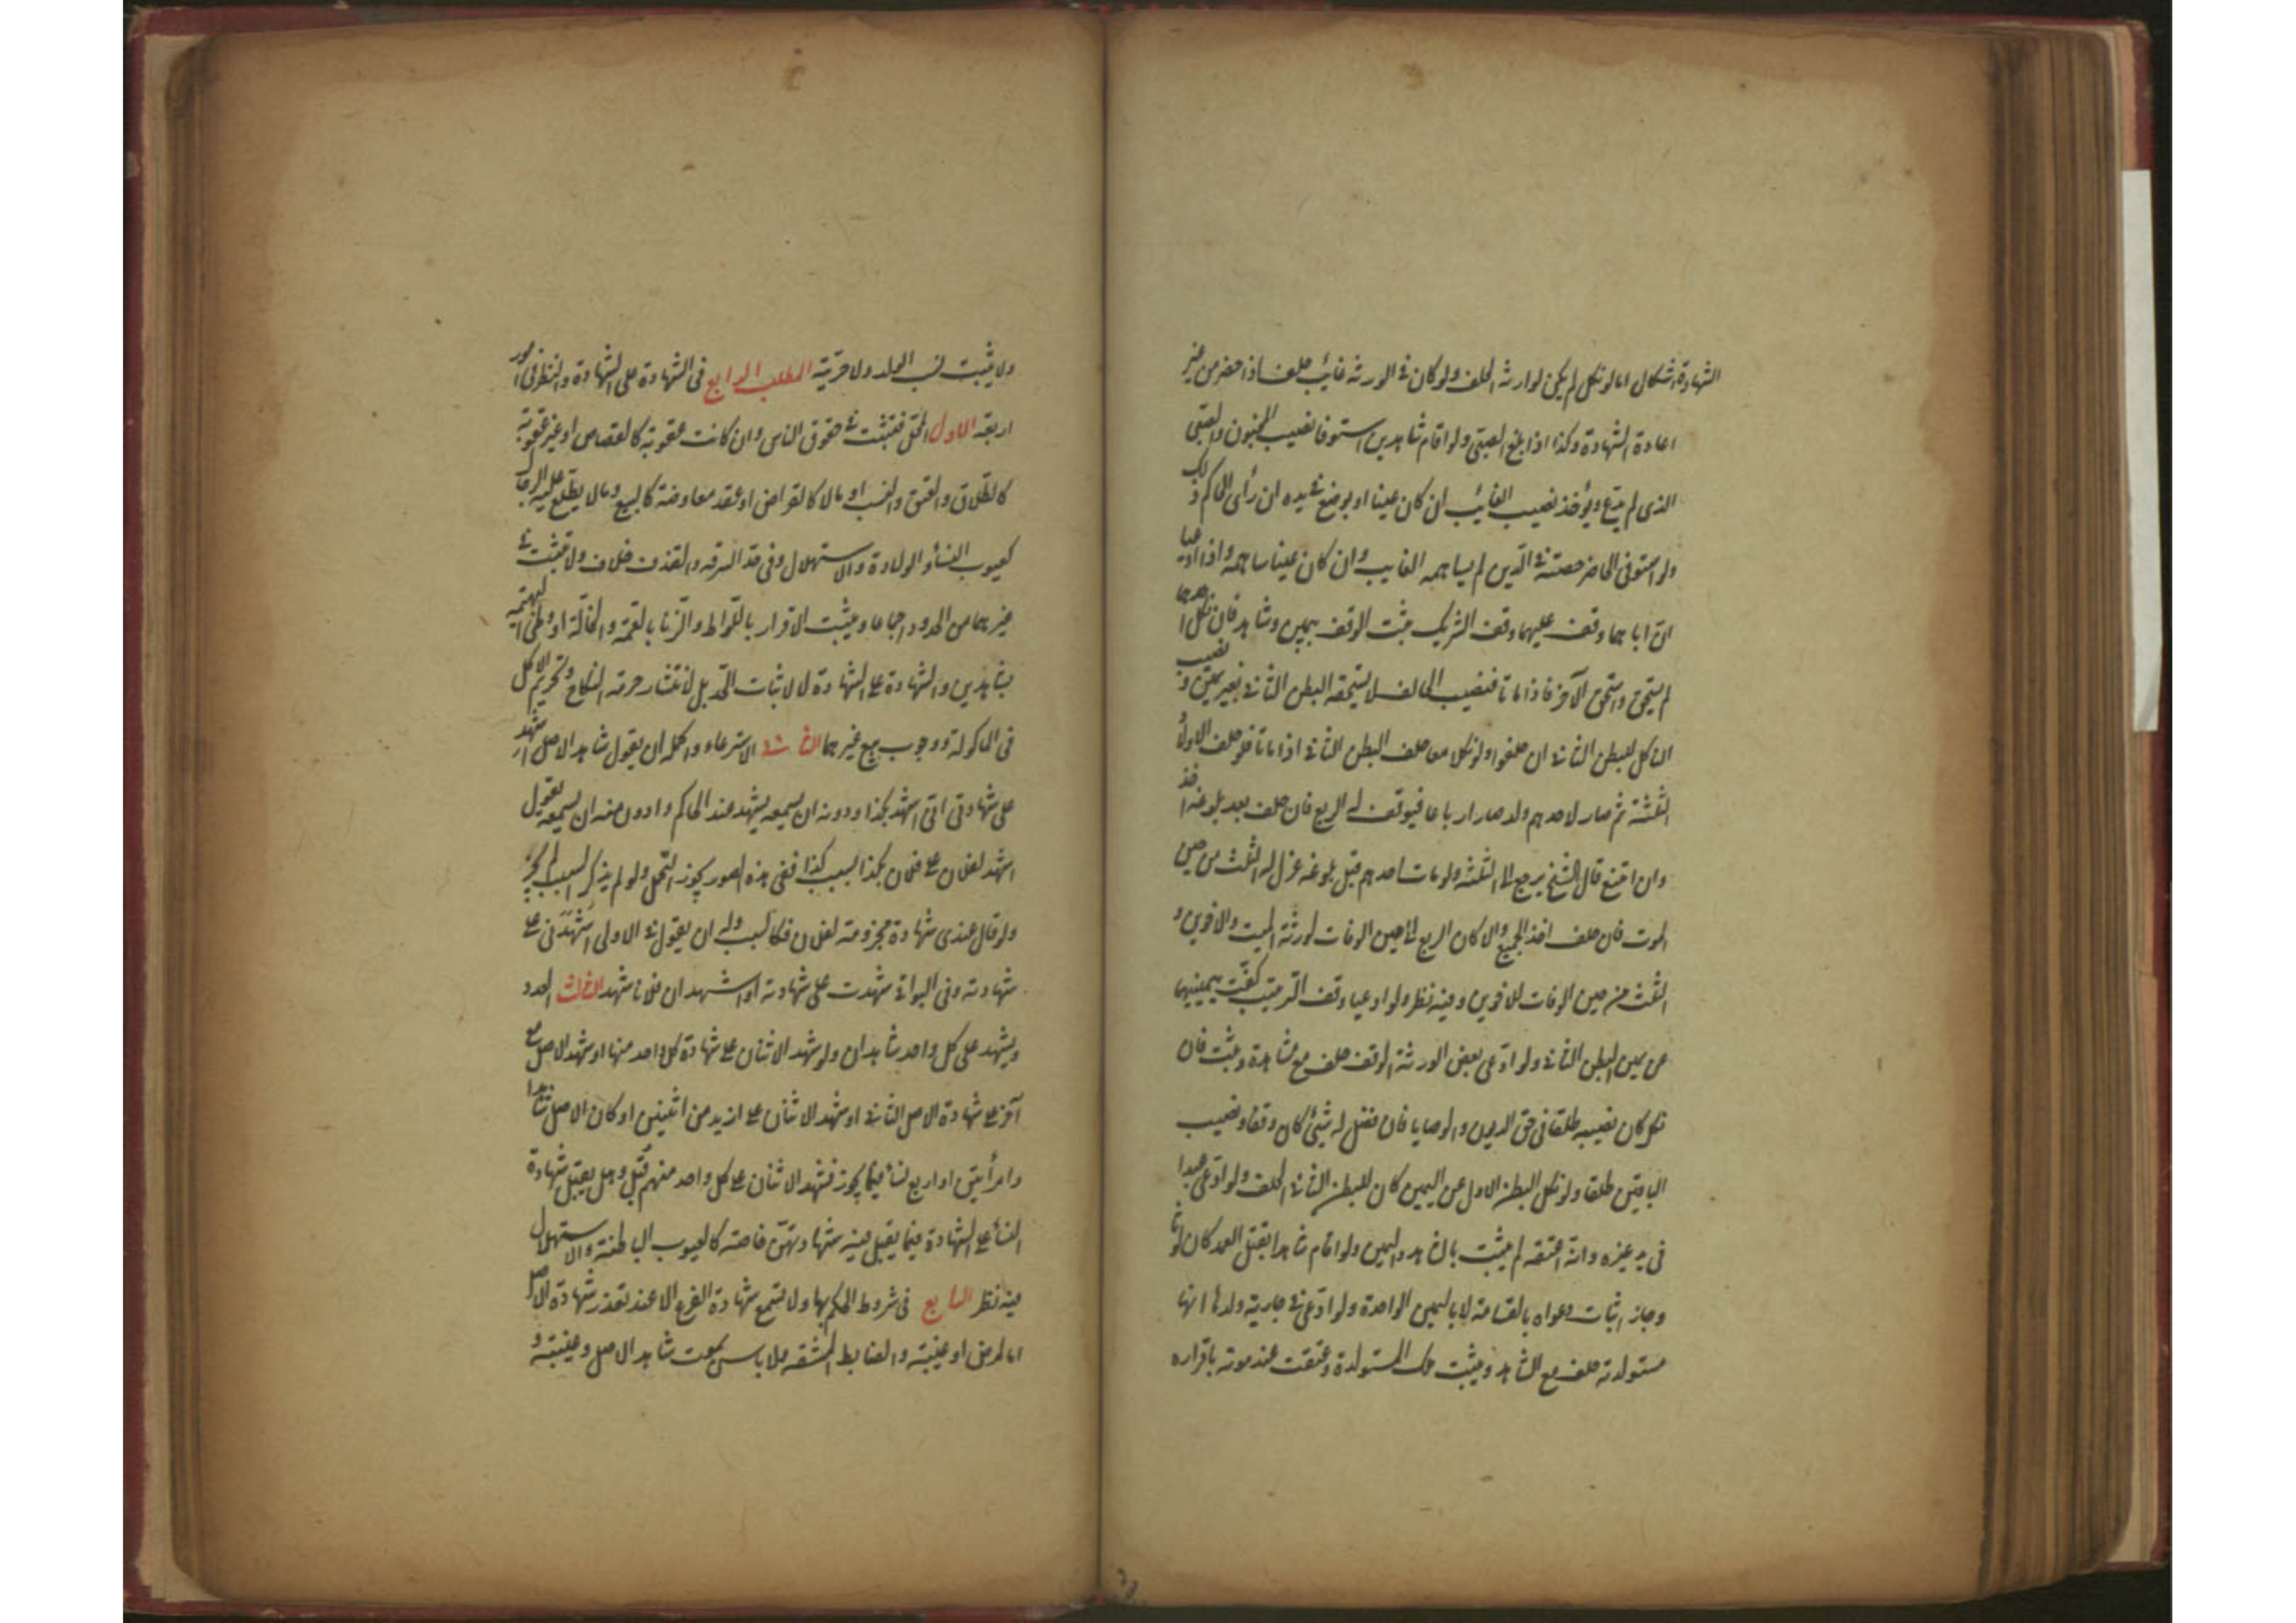 الشهادة اشكال اما لو نكل لم يكن لوارثه الحلف ولو كان في الورثة غائب حلف اذا حضر من غير
اعادة الشهادة وكذا اذا بلغ الصبي ولو اقام شاهدين استوفا نصيب المجنون والصبي
الذي لم يدع ويؤخذ نصيب الغائب ان كان عينا او يوضع في يده ان رأى الحاكم ذلك
ولو استوفى الحاضر حصته في الدين لم يساهمه الغايب وان كان عينا ساهمه واذا ادعيا
ان اباهما وقف عليهما وقف الشريك ثبت الوقف بيمين وشاهد فان نكل احدهما
لم يستحق واستحق الآخر فاذا ماتا فنصيب الحالف لا يستحقه البطن الثاني بغير يمين ونصيب
الناكل للبطن الثاني ان حلفوا ولو نكلا معا حلف البطن الثاني اذا ماتا فلو حلف الاولاد
الثلثة ثم صار لاحدهم ولد صار ارباعا فيوقف له الربع فان حلف بعد بلوغه اخذ
وان امتنع قال الشيخ يرجع الى الثلثة ولو مات احدهم قبل بلوغه عزل له الثلث من حين
الموت فان حلف اخذ الجميع والا كان الربع الى حين الوفات لورثة الميت والاخوين و
الثلث من حين الوفات للاخوين وفيه نظر ولو ادعيا وقف الترتيب كفت يمينهما
عن يمين البطن الثاني ولو ادعى بعض الورثة الوقف حلف مع شاهده وثبت فان
نكل كان نصيبه طلقا في حق الديون والوصايا فان فضل له شيئ كان وقفا ونصيب
الباقين طلقا ولو نكل البطن الاول عن اليمين كان للبطن الثاني الحلف ولو ادعى عبدا
في يد غيره وانه اعتقه لم يثبت بالشاهد واليمين ولو اقام شاهدا بقتل العمد كان لوثا
وجاز اثبات دعواه بالقسامة لا باليمين الواحدة ولو ادعى في جارية وولدها انها
مستولدته حلف مع الشاهد ويثبت ملك المستولدة وعتقت عند موته باقراره
ولا يثبت نسب الولد ولا حريته المطلب الرابع في الشهادة على الشهادة والنظر في امور
اربعة الاول المحل فتثبت في حقوق الناس وان كانت عقوبة كالقصاص او غير عقوبة
كالطلاق والعتق والنسب او مالا كالقراض او عقد معاوضة كالبيع وما لا يطلع عليه الرجال
كعيوب النسأ والولادة والاستهلال وفي حد السرقة والقذف خلاف ولا تثبت في
غيرهما من الحدود اجماعا ويثبت الاقرار باللواط والزنا بالعمة والخالة او وطئ البهيمة
بشاهدين والشهادة على الشهادة لا لاثبات الحد بل لانتشار حرمة النكاح وتحريم الاكل
في المأكولة ووجوب بيع غيرها الثاني الاسترعاء واكمله ان يقول شاهد الاصل اشهد
على شهادتي اني اشهد بكذا ودونه ان يسمعه يشهد عند الحاكم وادون منه ان يسمعه يقول
اشهد لفلان على فلان بكذا بسبب كذا ففي هذه الصور يجوز التحمل ولو لم يذكر السبب لم يجز
ولو قال عندي شهادة مجزومة لفلان فكالسبب وله ان يقول في الاولى اشهدني على
شهادته وفي البواقي شهدت على شهادته او اشهد ان فلانا شهد الثالث العدد
ويشهد على كل واحد شاهدان ولو شهد الاثنان على شهادة كل واحد منهما او شهد الاصل مع
آخر على شهادة الاصل الثاني او شهد الاثنان على ازيد من اثنين او كان الاصل شاهدا
وامرأتين او اربع نسأ فيما يجوز فشهد الاثنان على كل واحد منهم قبل وهل يقبل شهادة
النسأ على الشهادة فيما يقبل فيه شهادتهن خاصة كالعيوب الباطنة والاستهلال
فيه نظر الرابع في شروط الحكم بها ولا تسمع شهادة الفرع الا عند تعذر شهادة الاصل
اما لمرض او غيبته والضابط المشقة ولا باس بموت شاهد الاصل وغيبته و